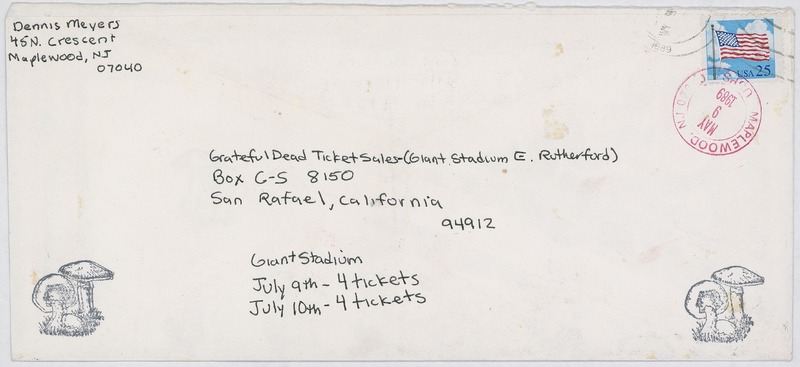 Dennis Meyers
45 N. Crescent
Maplewood, NJ
07040
1989
USA 25
MAPLEWOOD, NJ 070
USPS
MAY
9
1989
Grateful Dead Ticket Sales-(Giant Stadium E. Rutherford)
Box C-S 8150
San Rafael, California
94912
Giant Stadium
July 9th - 4 tickets
July 10th - 4 tickets